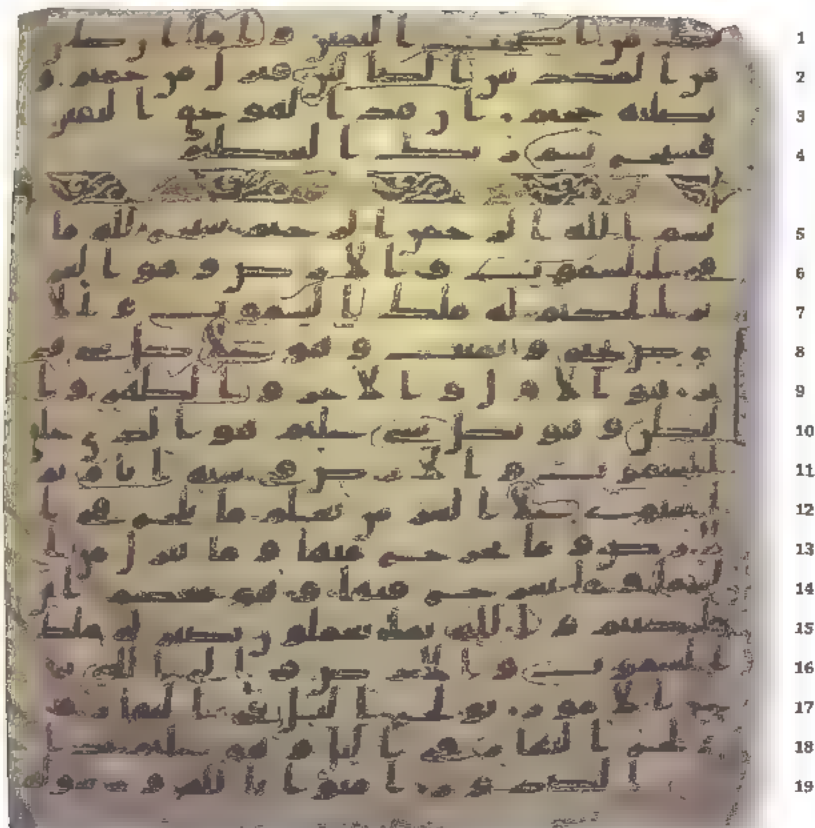 لك من اصحب اليمين و اما ان كان
من المكذبين الضالين فنزل من حميم و
تصلية جحيم ان هذا لهو حق اليقين
فسبح باسم ربك العظيم
بسم الله الرحمن الرحيم سبح لله ما
في السموت و الارض و هو العز
يز الحكيم له ملك السموت و الا
رض يحي و يميت و هو على كل شي قد
ير هو الاول و الاخر و الظهر و ا
لبطن و هو بكل شي عليم هو الذي خلق
السموت و الارض في ستة ايام ثم
استوى على العرش يعلم ما يلج في ا
لارض و ما يخرج منها و ما ينزل من ا
لسما و ما يعرج فيها و هو معكم اين
ما كنتم و الله بما تعملون بصير له ملك
السموت و الارض و الى الله تر
جع الامور يولج اليل في النهار و
يولج النهار في اليل و هو عليم بذا
ت الصدور امنوا بالله و رسوله
1
2
3
4
5
6
7
8
9
10
11
12
13
14
15
16
17
18
19